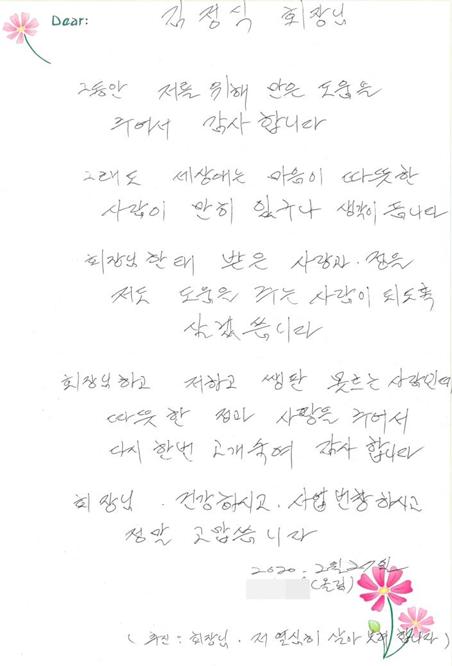 Dear: 김정식 회장님
그동안 저를 위해 많은 도움을
주어서 감사 합니다
그래도 세상에는 마음이 따뜻한
사람이 만히 있구나 생각이 듭니다
회장님 한태 받은 사랑과. 정을
저도 도움을 주는 사람이 되도록
살겠 씁니다
회장님하고 저하고 쌩판 못르는 사람인데
따뜻한 정과 사랑을 주어서
다시 한번 고개숙여 감사 합니다
회장님. 건강하시고. 사업 번창 하시고
정말 고맙씁니다
2020. 2월 27일
(올림)
(추신: 회장님. 저 열심히 살아 합니다)